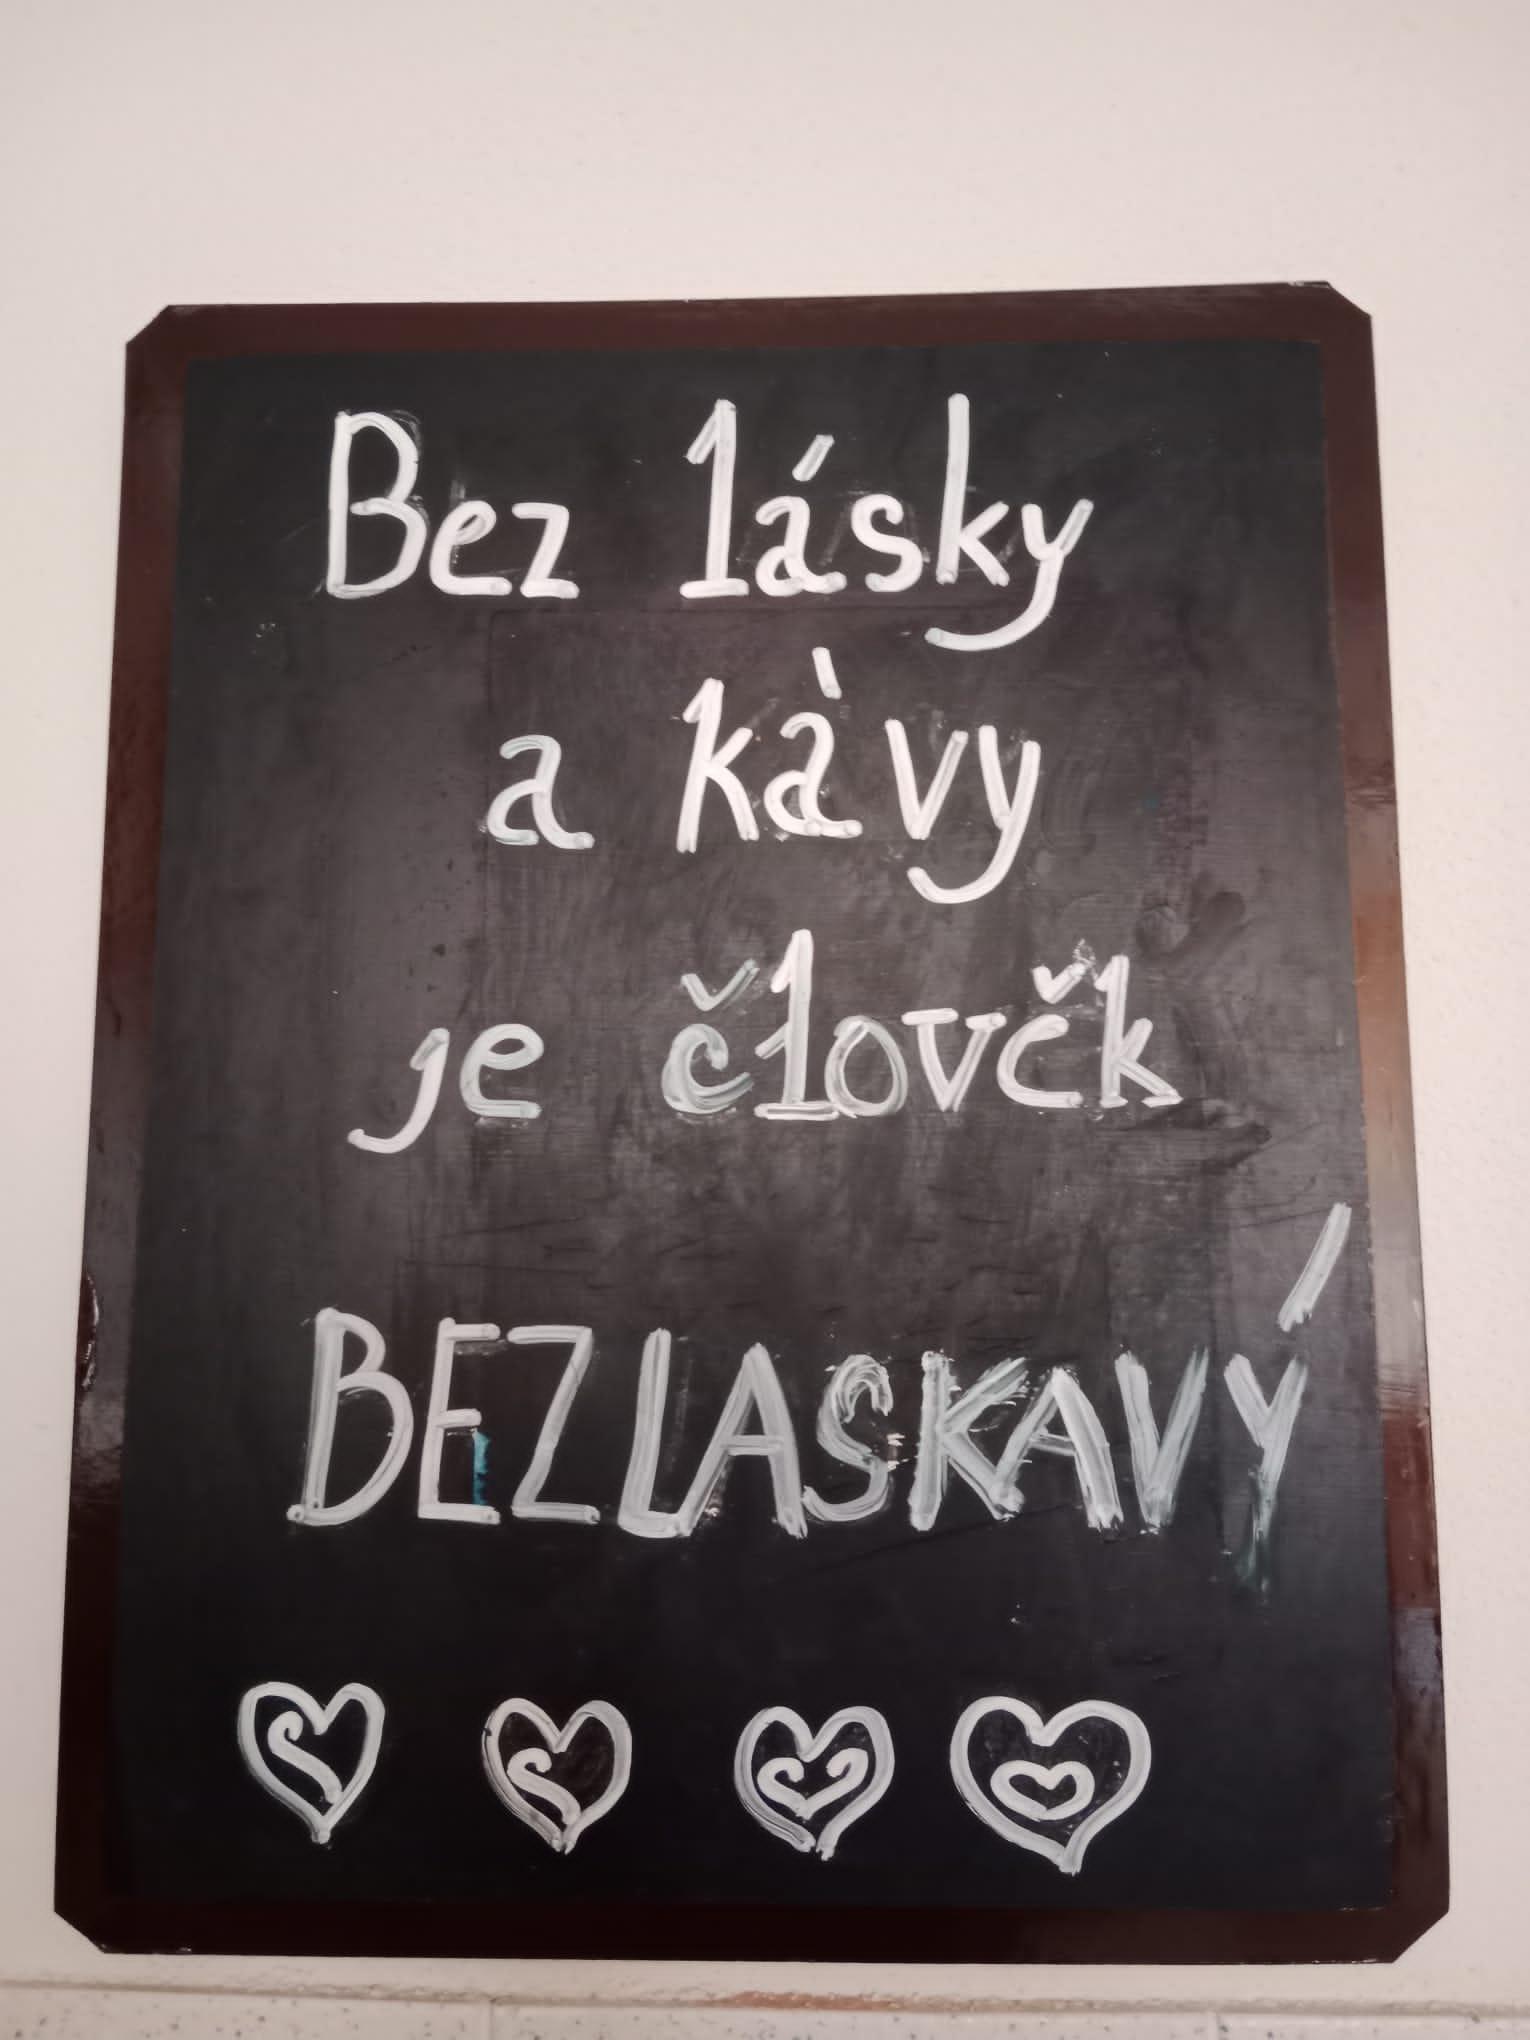 Bez lásky
a kàvy
je človčk
BEZLASKAVÝ